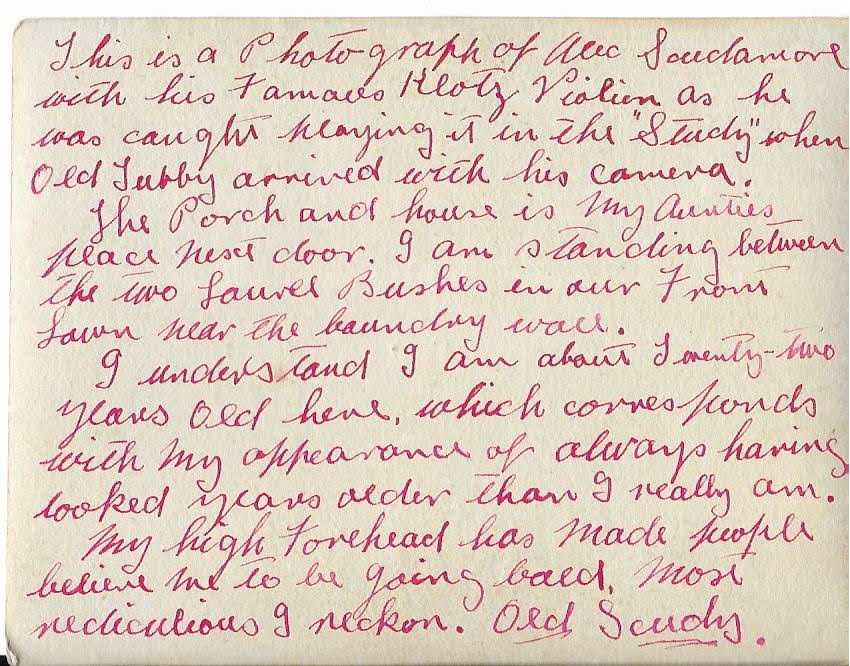 This is a Photo-graph of Alec Scudamore
with his Famous Klotz Violin as he
was caught playing it in the "Study" when
Old Tubby arrived with his camera.
The Porch and house is My Aunties
place next door. I am standing between
the two Laurel Bushes in our Front
Lawn near the boundry wall.
I understand I am about Twenty-two
years old here, which corresponds
with My appearance of always having
looked years older than I really am.
My high Forehead has made people
believe me to be going bald, Most
rediculious I reckon. Old Scudy.